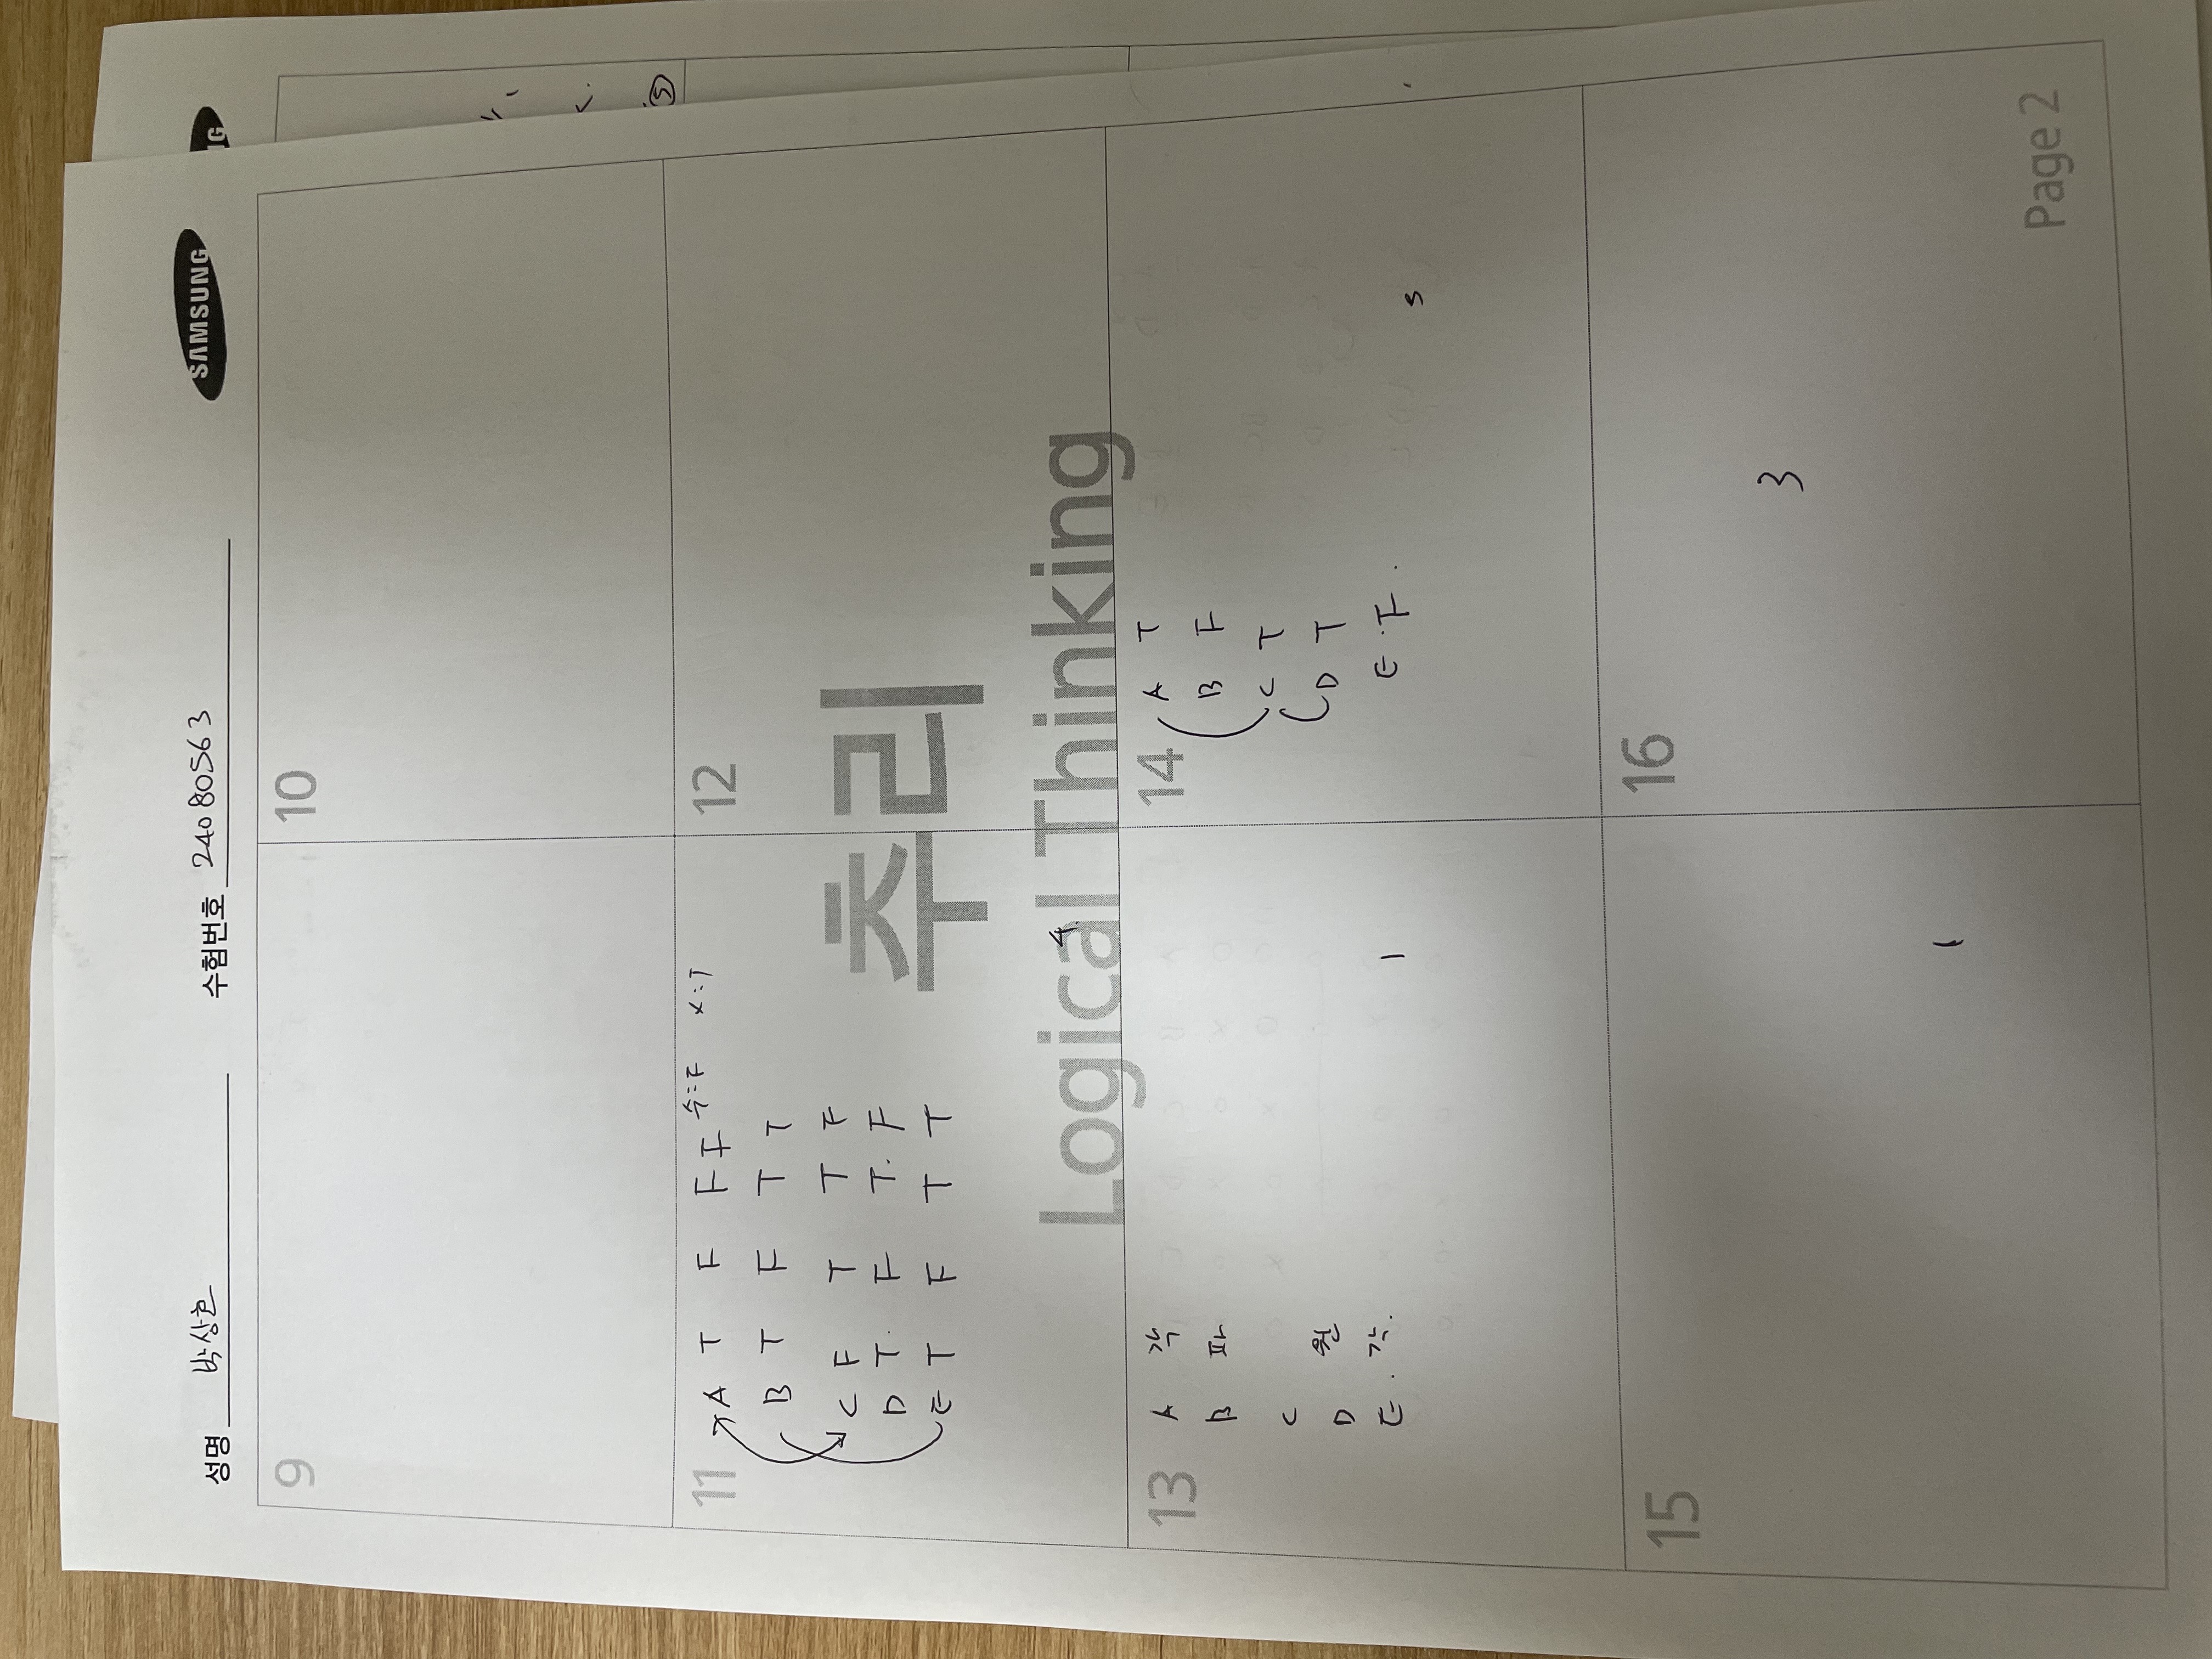 성명 박상흔 수험번호 24080563 SAMSUNG
9
10
11
A T F F F 수:F X:T
B T F T T
C F T T F
D T. F T. F
E T F T T
4.
12
추리
Logical Thinking
13
A 각
B 파
C
D 원
E. 각.
1
14
A T
B F
C T
D T
E. F.
5
15
1
16
3
Page 2
⑤